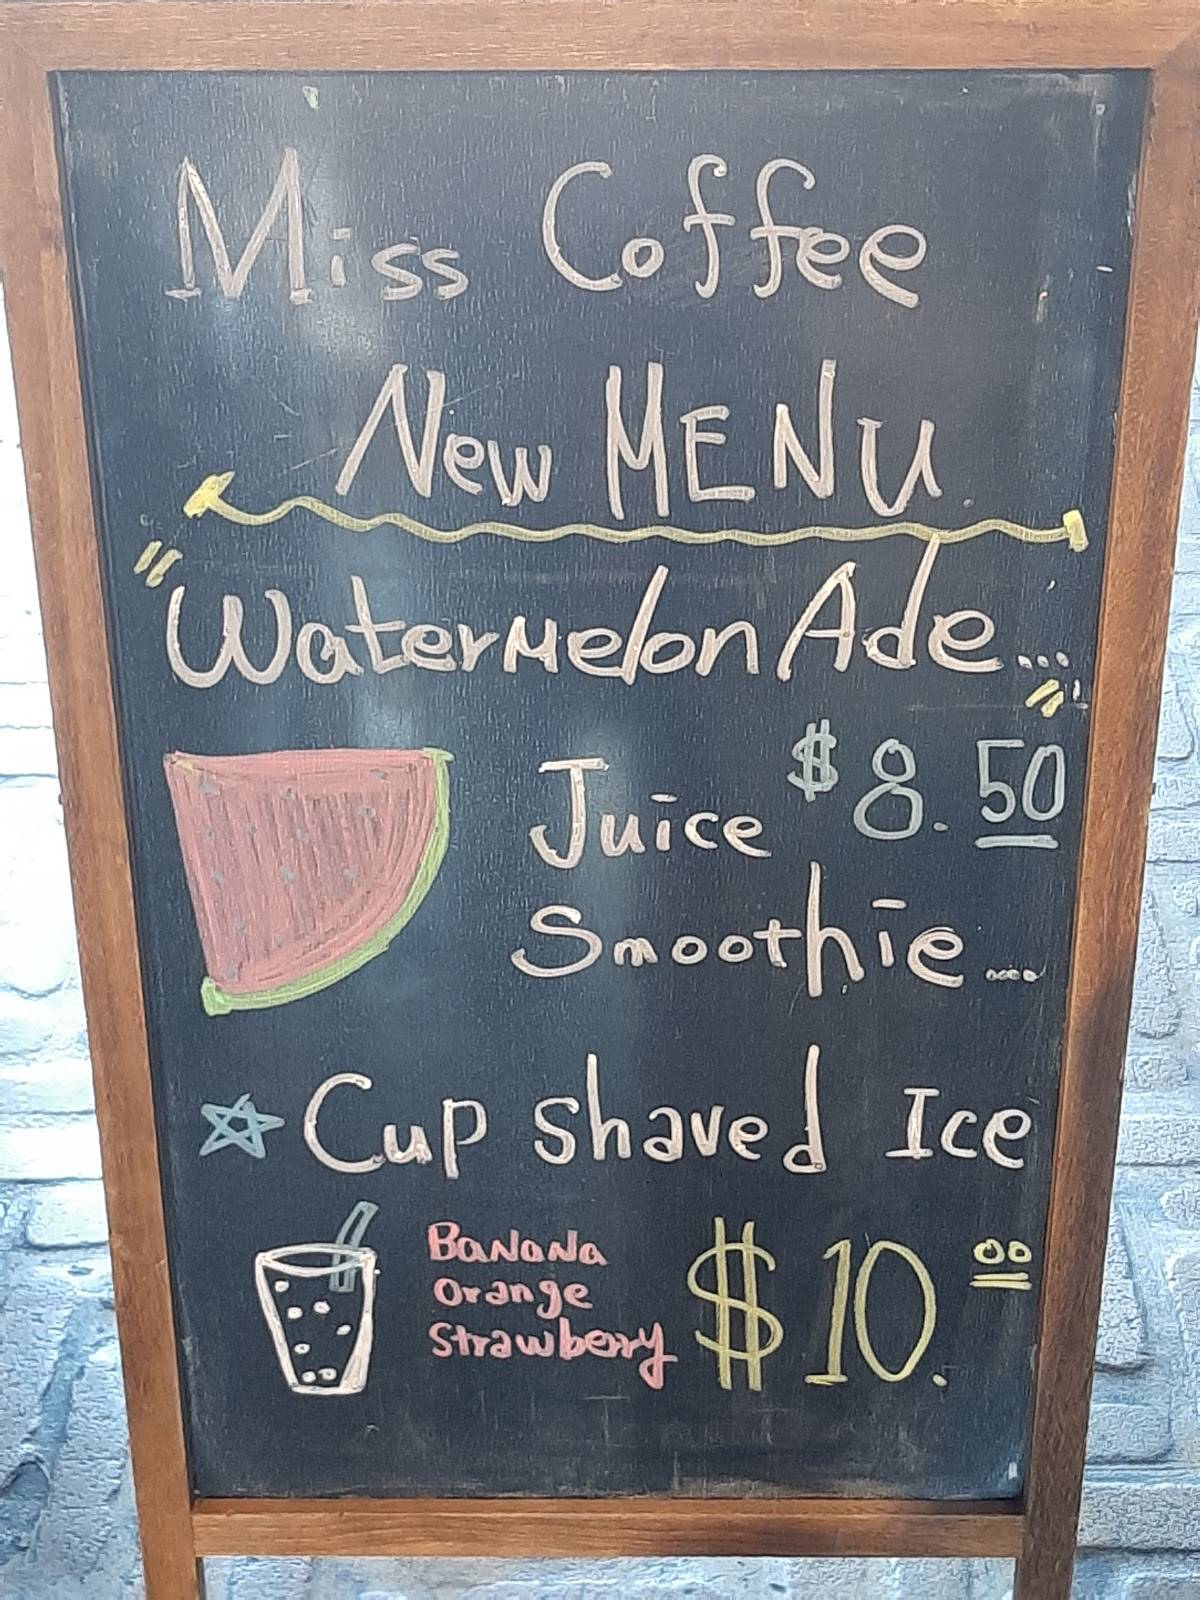 Miss Coffee
New MENU
"Watermelon Ade..."
Juice $8.50
Smoothie....
Cup shaved Ice
Banana
Orange
Strawberry
$10.00